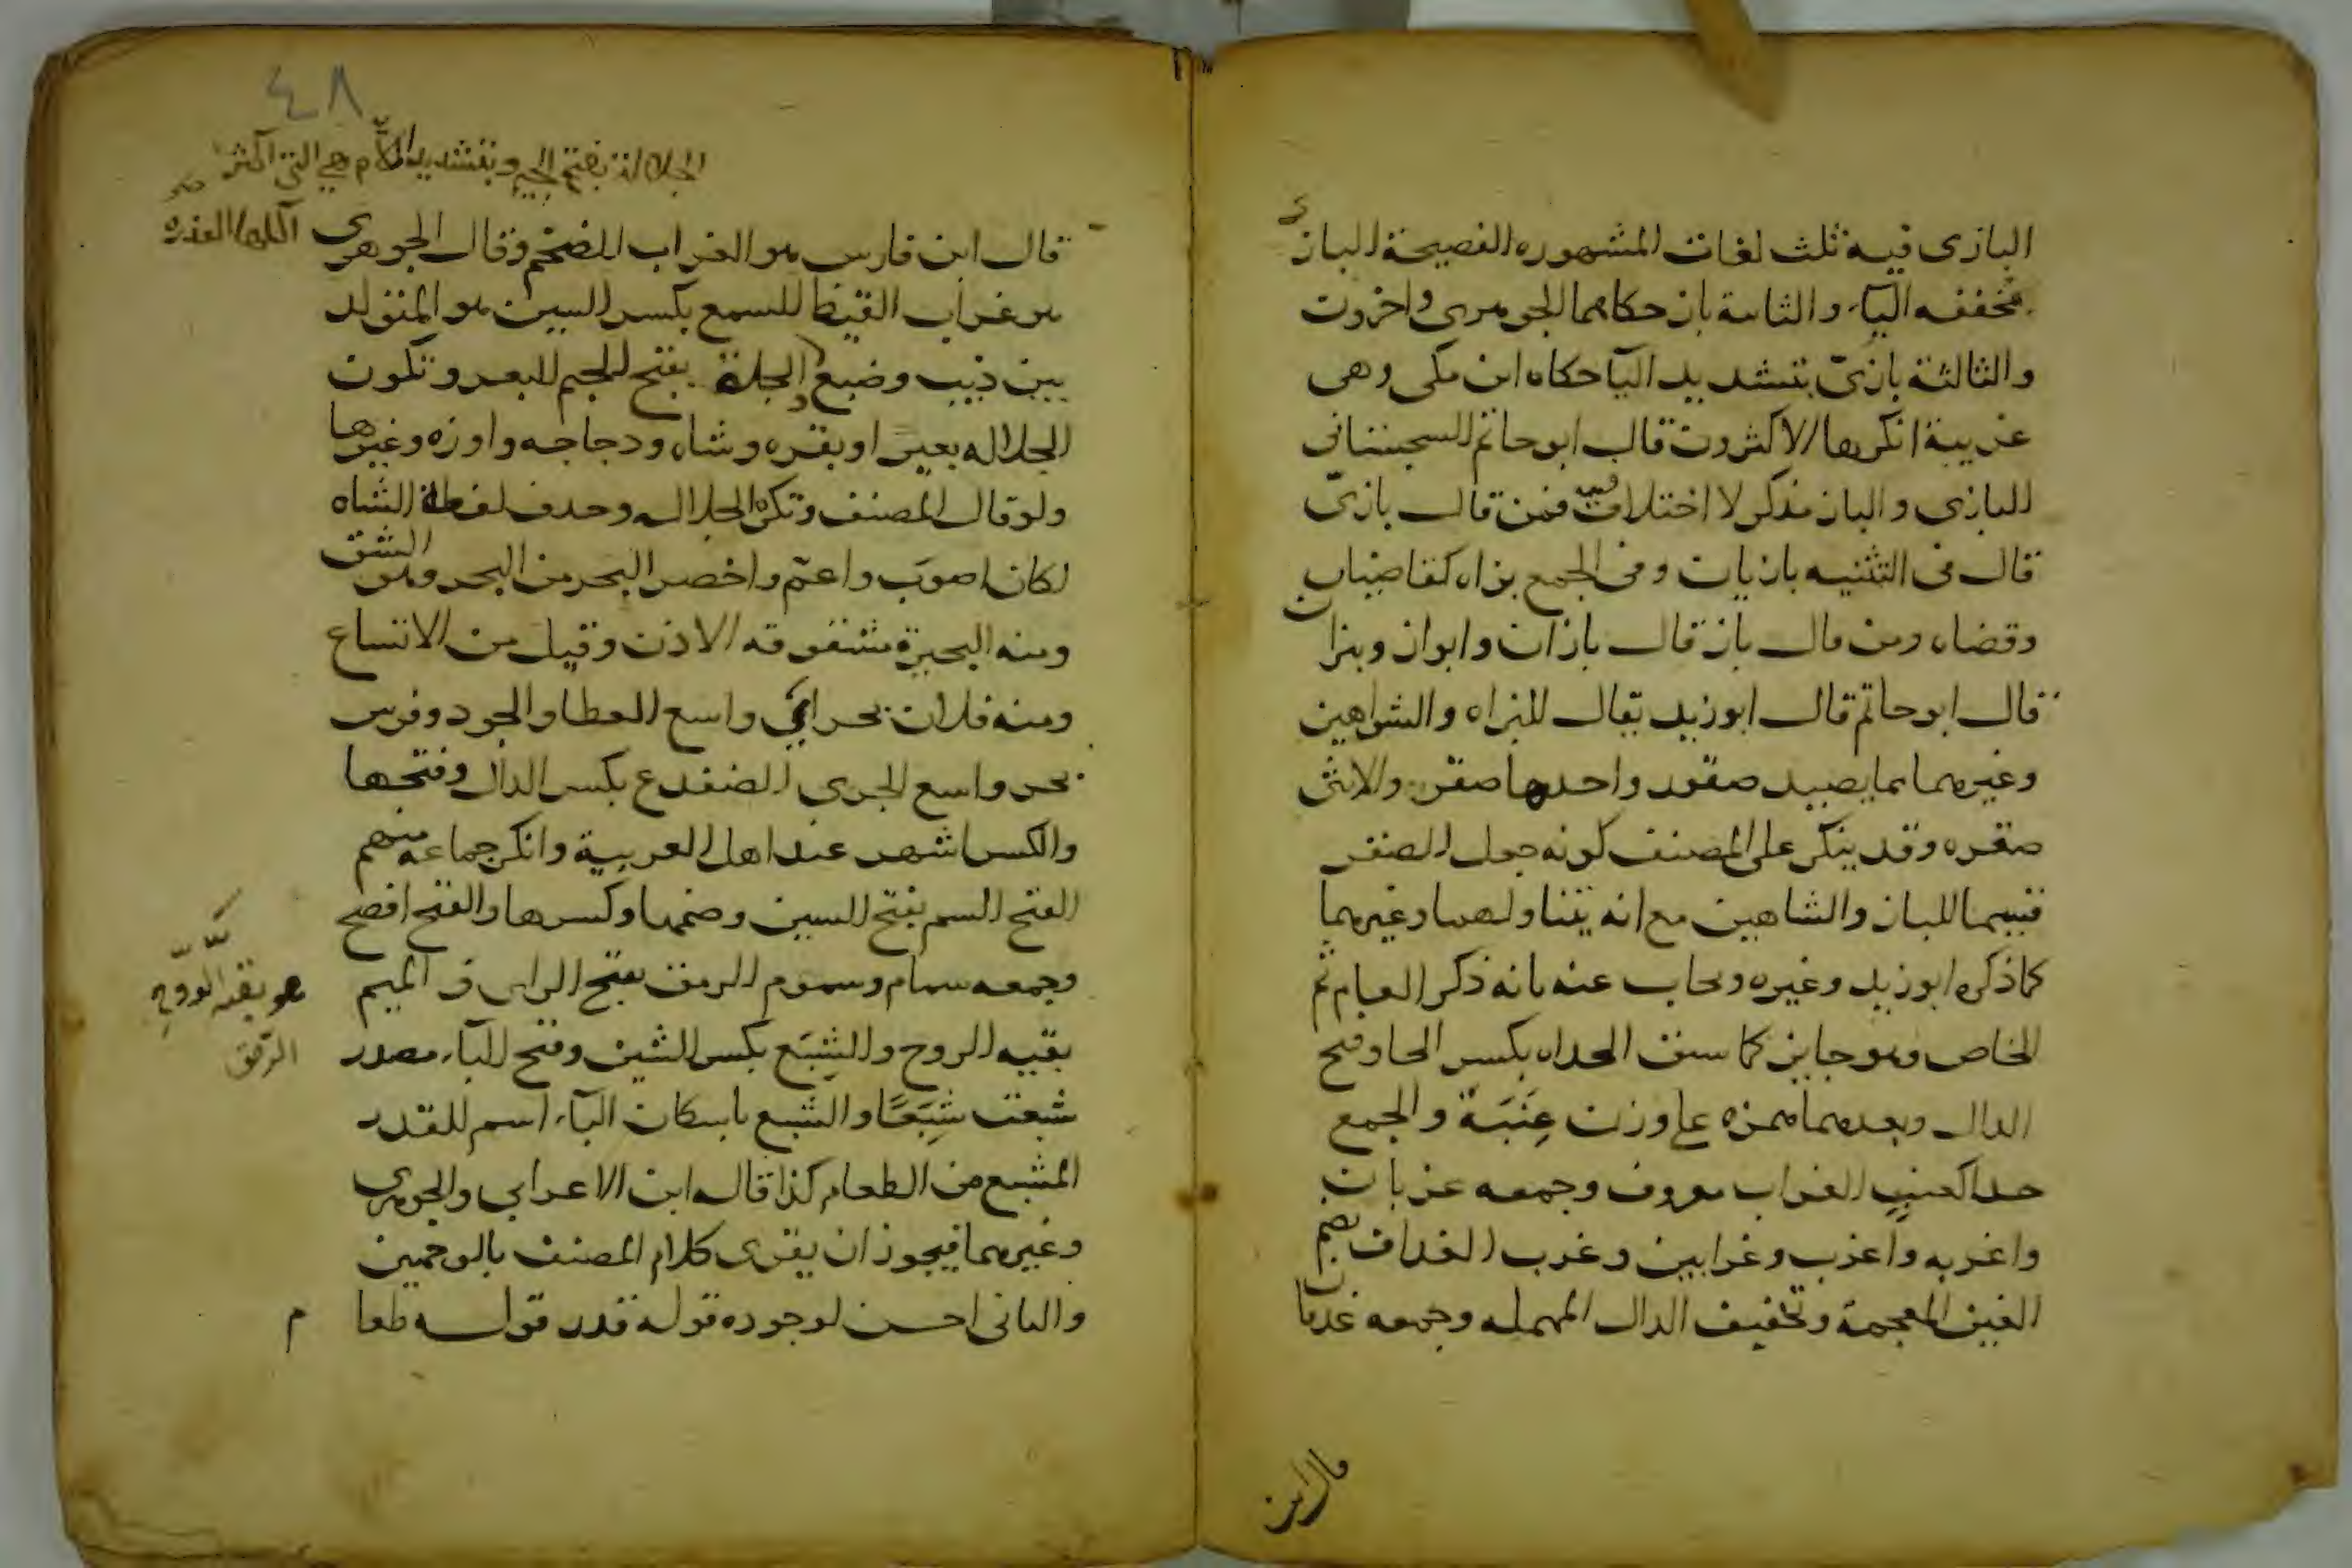 البازى فيه ثلث لغات المشهوره الفصيحة البازى
مخففه اليآء والثانية باز حكاهما الجوهرى واخرون
والثالثة بازىّ بتشديد اليآ حكاه ابن مكى وهى
غريبة انكرها الاكثرون قال ابو حاتم السجستانى
البازى والباز مذكر لا اختلاف فيه فمن قال بازىّ
قال فى التثنيه بازيان وفى الجمع بزاه كقاضيان
وقضاه ومن قال باز قال بازان وابواز وبزان
قال ابو حاتم قال ابو زيد يقال للبزاه والشواهين
وغيرهما مما يصيد صقور واحدها صقر والانثى
صقره وقد ينكر على المصنف كونه جعل الصقر
قسيما للباز والشاهين مع انه يتناولهما وغيرهما
كما ذكره ابو زيد وغيره ويجاب عنه بانه ذكر العام ثم
الخاص وهو جايز كما سبق الحداه بكسر الحا وفتح
الدال وبعدهما همزه على وزن عِنَبَة والجمع
حدا كعنبٍ الغراب معروف وجمعه غربان
واغربه واغرب وغرابين وغرب الغداف بضم
الغين المعجمة وتخفيف الدال المهمله وجمعه غدفان
قال ابن
٤٨
الجلالة بفتح الجيم وبتشديد اللام هي التي اكثر
اكلها العذره
قال ابن فارس هو الغراب الضخم وقال الجوهرى
هو غراب القيظ السمع بكسر السين هو المتولد
بين ذيب وضبع الجلة بفتح الجيم البعر وتكون
الجلاله بعيرا وبقره وشاه ودجاجه واوزه وغيرها
ولو قال المصنف وتكره الجلاله وحذف لفظة الشاه
لكان اصوب واعمّ واخصر البحر من البحر وهو الشق
ومنه البحيرة مشقوقه الاذن وقيل من الاتساع
ومنه فلان بحر اي واسع العطا والجود وفرس
بحر واسع الجرى الضفدع بكسر الدال وفتحها
والكسر اشهر عند اهل العربية وانكر جماعه منهم
الفتح السم بفتح السين وضمها وكسرها والفتح افصح
وجمعه سمام وسموم الرمق بفتح الرا والميم
بقيه الروح والشِبَع بكسر الشين وفتح البآء مصدر
شبعت شِبَعًا والشبع باسكان البآء اسم للقدر
المشبع من الطعام كذا قاله ابن الاعرابي والجوهرى
وغيرهما فيجوز ان يقرى كلام المصنف بالوجهين
والثانى احسن لوجوده قوله قدر قوله طعا م
هو بقية الروح
الرّمق